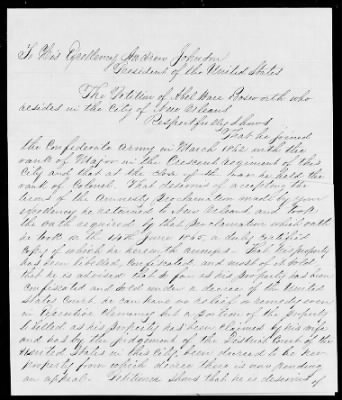 To His Excellency Andrew Johnson
President of the United States
The Petition of Abel Ware Bosworth who
resides in the City of New Orleans
Respectfully shows,
That he joined
the Confederate Army in March 1862 with the
rank of Major in the Crescent Regiment of this
City and that at the close of the war he held the
rank of Colonel. That desirous of accepting the
terms of the Amnesty Proclamation made by your
Excellency he returned to New Orleans and took
the oath required by that Proclamation which oath
he took on the June 1865, a duly certified
copy of which he herewith annexes. That his property
has been libelled, confiscated, and most of it sold
that he is advised that so far as his property has been
confiscated and sold under a decree of the United
States Court he can have no relief or remedy even
in Executive Clemency but a portion of the property
libelled as his property has been claimed by his wife
and has by the judgement of the District Court of the
United States in this City been decreed to be her
property from which decree there is now pending
an appeal. Petitioner shows that he is desirous of